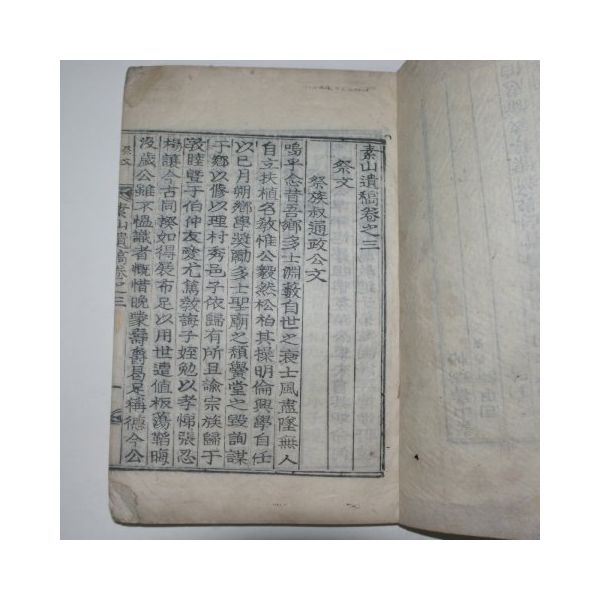 素山遺稿卷之三
祭文
祭族叔通政公文
嗚乎念昔吾鄉多士淵藪自世之衰士風盡墜無人
自立扶植名敎惟公毅然松柏其操明倫興學自任
以已月朔鄉學奬勵多士聖廟之頹黌堂之毁詢謀
于鄉以修以理村秀邑子依歸有所且諭宗族歸于
敦睦曁于伯仲友愛尤篤敎誨子姪勉以孝悌張忍
楊讓今古同揆如得裝布足以用世遭値板蕩韜晦
沒歲公雖不慍識者慨惜晩蒙壽爵曷足稱德今公
祭文
素山遺稿卷之三
一